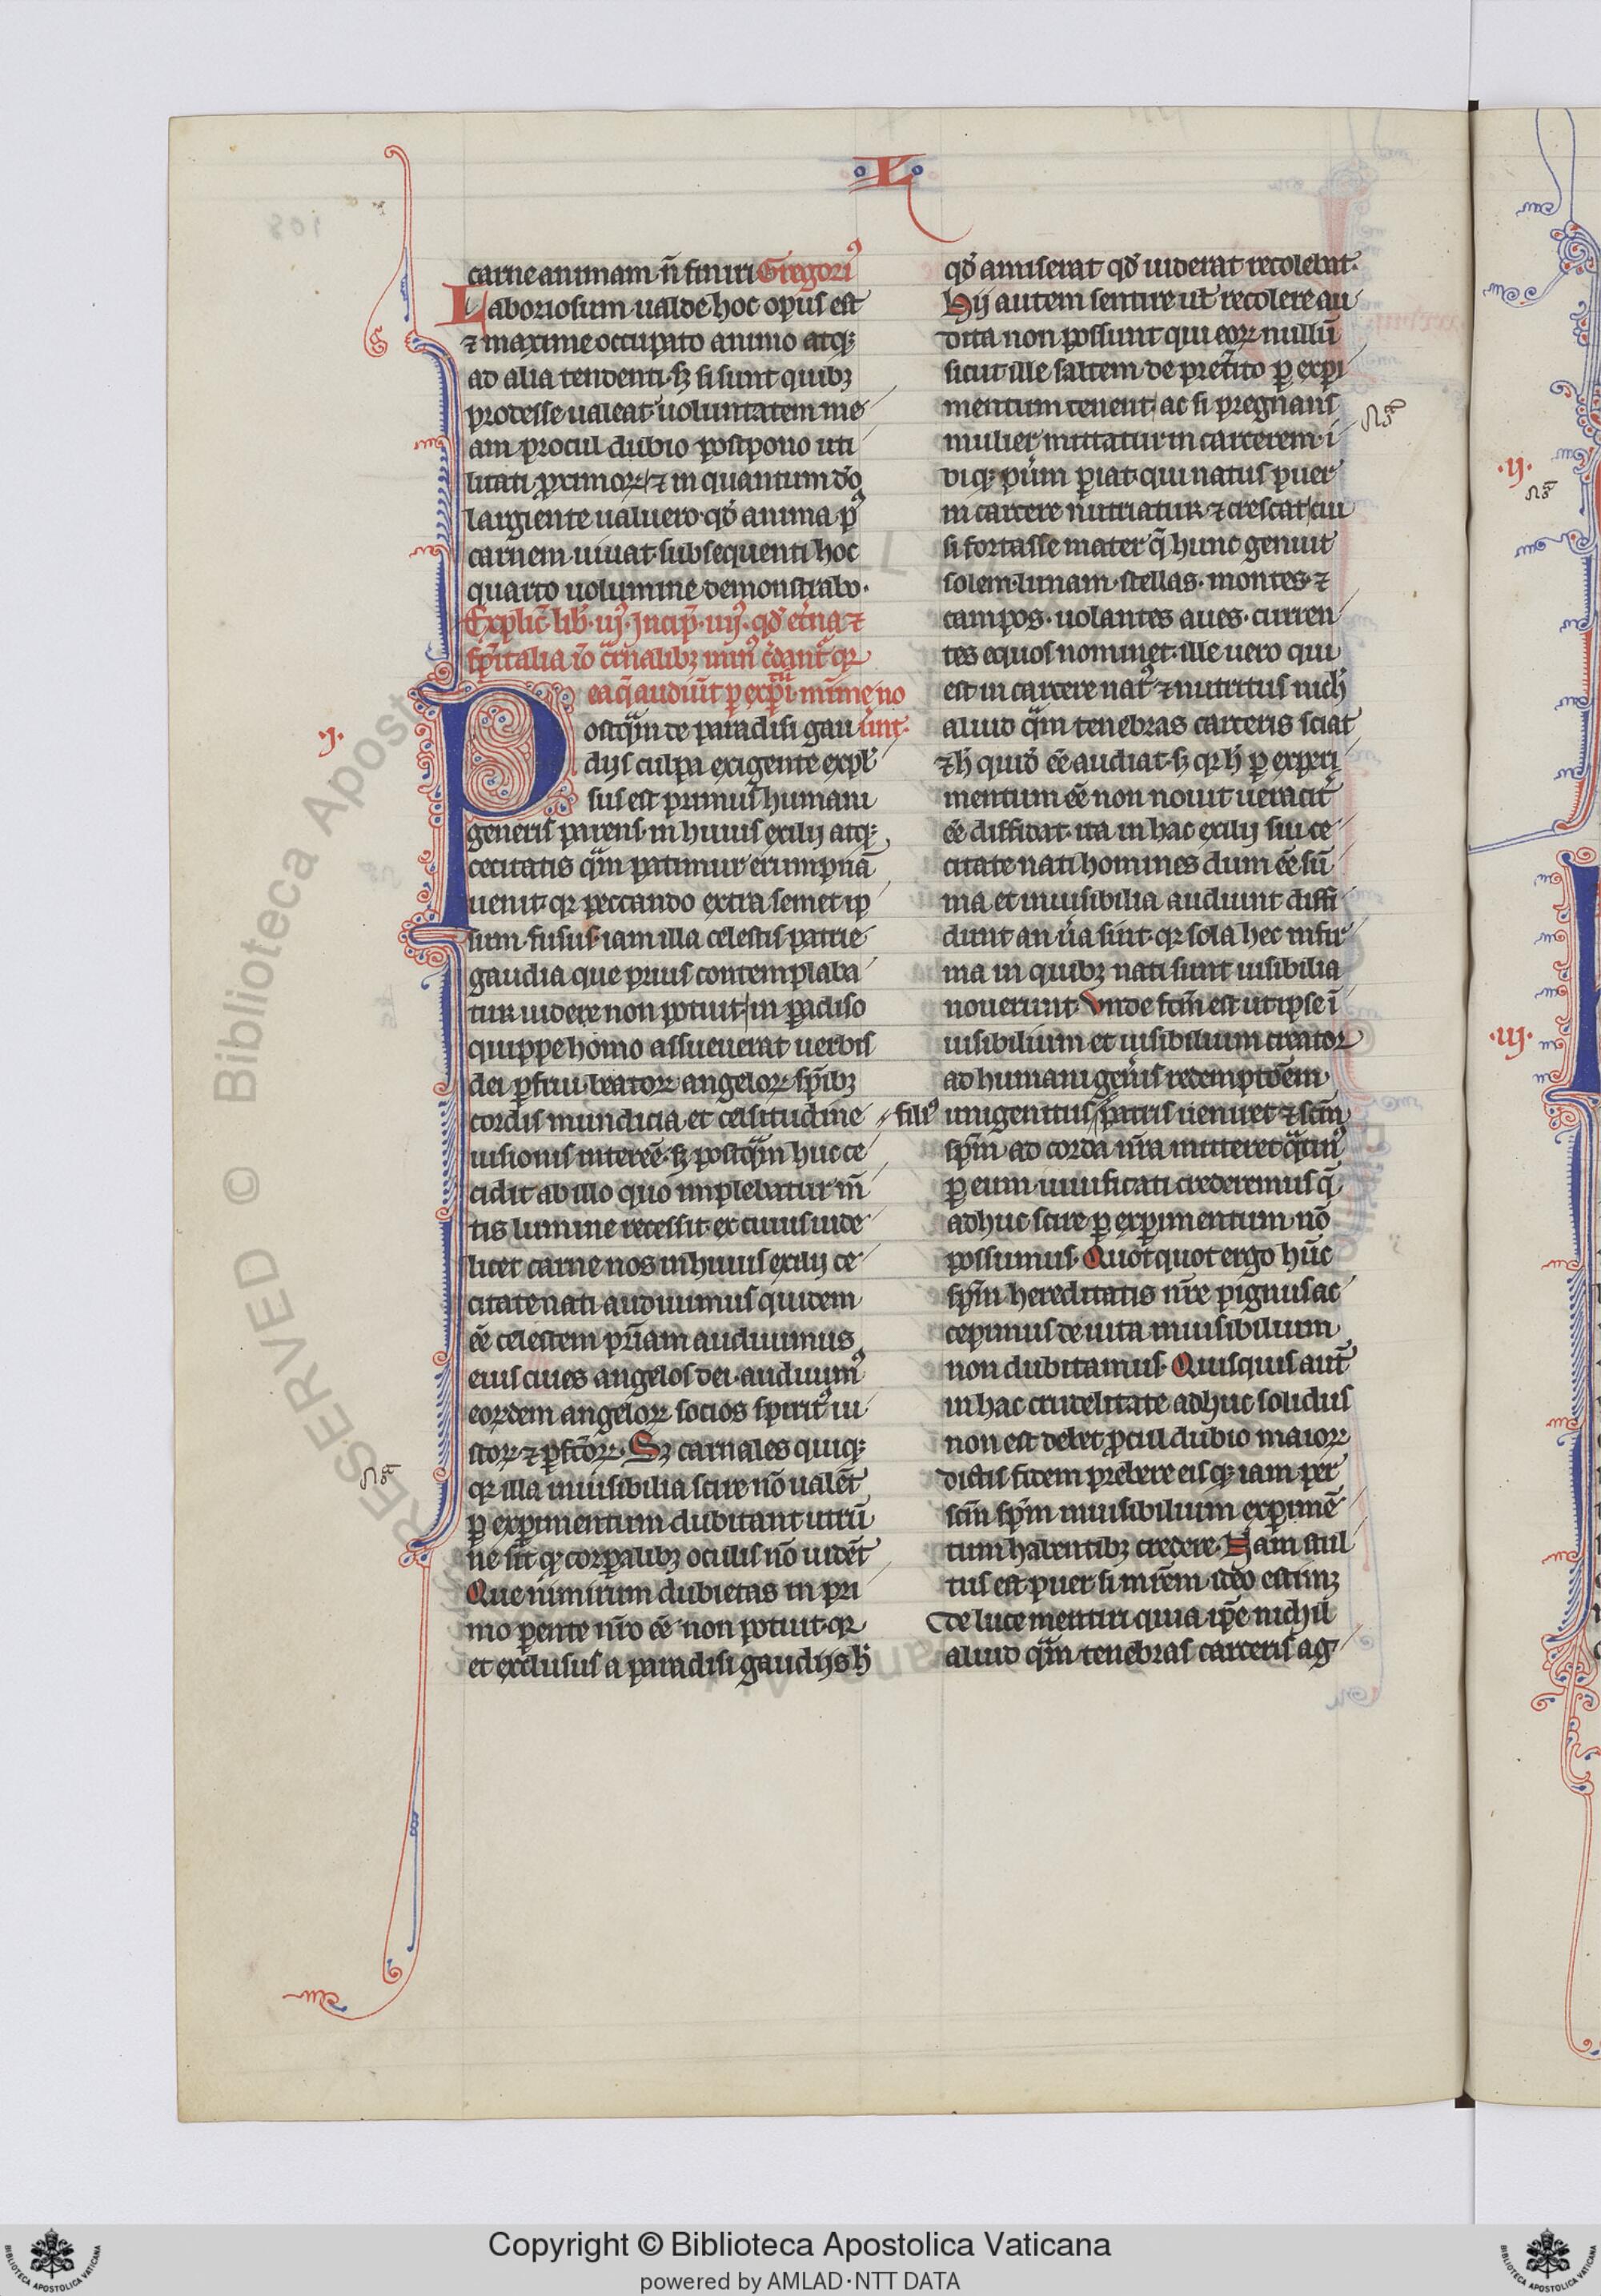 L
carne animam n̄ finiri Gregori⁹
Laboriosum ualde hoc opus est
⁊ maxime occupato animo atq;
ad alia tendenti. sꝫ si sunt quibꝫ
prodesse ualeat uoluntatem me
am procul dubio postpono uti
litati ꝓximoꝝ / ⁊ in quantum dō
largiente ualuero. qđ anima p⁹
carnem uiuat. subsequenti hoc
quarto uolumine demonstrabo.
Explic̄ lib̄. iij. Incip̄. iiij. qđ et̄na ⁊
sp̄italia iō c̄rnalibꝫ min⁹ c̄dant᷑ qꝛ
ea q̄ audiūt ꝑ exꝑi m̄tū mīme no
.j.
Postqͣm de paradisi gau uūt.
dijs culpa exigente expl̓
sus est primus humani
generis parens. in huius exilij atq;
cecitatis qͣm patimur erumpnā
uenit. qꝛ peccando extra semet ip
sum fusus. iam illa celestis patrie
gaudia que prius contemplaba
tur uidere non potuit / in ꝑadiso
quippe homo assueuerat uerbis
dei ꝑfrui. beatoꝝ angeloꝝ sp̄ibꝫ
cordis mundicia. et celsitudine
uisionis intereē. sꝫ postqͣm huc ce
cidit ab illo quo implebatur m̄
tis lumine recessit. ex cuius uide
licet carne nos in huius exilij ce
citate nati audiuimus quidem
eē celestem pr̄iam audiuimus
eius ciues angelos dei. audiuim⁹
eoꝝdem angeloꝝ socios spirit⁹ iu
stoꝝ ⁊ ꝑfcōꝝ. Sꝫ carnales quiq;
qꝛ illa inuisibilia scire nō ualēt
ꝑ exꝑimentum dubitant utrū
ne sit q̇ corꝑalibꝫ oculis nō uidēt
Que nimirum dubietas in pri
mo ꝑente nr̄o eē non potuit. qꝛ
et exclusus a paradisi gaudijs h̓
qđ amiserat qđ uiderat recolebat.
Hij autem sentire ut̄ recolere au
dita non possunt qui eoꝝ nullū
sicut ille saltem de preter̄ito ꝑ exꝑi
mentum tenent / ac si pregnans
mulier mittatur in carcerem. i
biq; pūm ꝑiat. qui natus puer
in carcere nutriatur ⁊ crescat / cui
si fortasse mater q̄ hunc genuit
solem. lunam. stellas. montes. ⁊
campos. uolantes aues. curren
tes equos nominet. ille uero qui
est in carcere nat⁹ ⁊ nutritus nich̓
aliud qͣm tenebras carceris sciat
⁊ h̓ quid̓ eē audiat. sꝫ qꝛ h̓ ꝑ experi
mentum eē non nouit ueracit̓
eē diffidat. ita in hac exilij sui ce
citate nati homines dum eē sū
ma et inuisibilia audiunt diffi
dunt an uͣa sint. qꝛ sola hec infir
ma in quibꝫ nati sunt uisibilia
nouerunt. Vnde fcm̄ est ut ipse ī
uisibilium et uisibilium creator
ad humani gen̓is redemptōem
fili⁹
unigenitus patris ueniret ⁊ scm̄
spm̄ ad corda nr̄a mitteret qͣtin⁹
ꝑ eum uiuificati crederemus q̄
adhuc scire ꝑ exꝑimentum nō
possumus. Quotquot ergo hūc
spm̄ hereditatis nr̄e pignus ac
cepimus de uita inuisibilium
non dubitamus. Quisquis aut̄
in hac crudelitate adhuc solidus
non est debet ꝓcul dubio maioꝝ
dictis fidem prebere eisq; iam per
scm̄ spm̄ inuisibilium exꝑimē
tum habentibꝫ credere. Nam stul
tus est puer si mr̄em ideo estimꝫ
de luce mentiri quia ip̄e nichil
aliud qͣm tenebras carceris ag
.ij.
.iij.
Copyright © Biblioteca Apostolica Vaticana
powered by AMLAD·NTT DATA